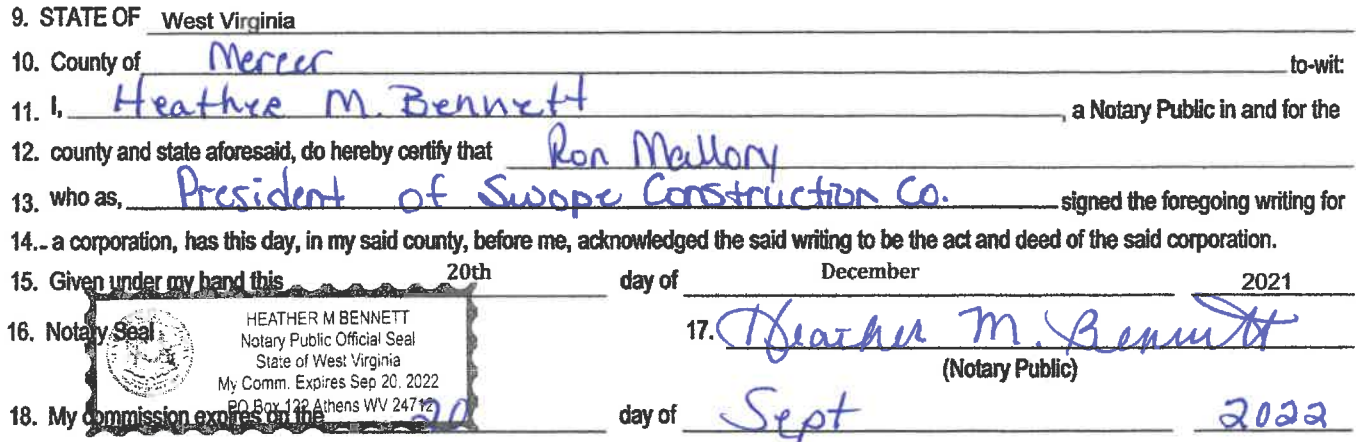 9. STATE OF West Virginia
10. County of Mercer to-wit:
11. I, Heather M. Bennett, a Notary Public in and for the
12. county and state aforesaid, do hereby certify that Ron Mallory
13. who as, President of Swope Construction Co. signed the foregoing writing for
14. a corporation, has this day, in my said county, before me, acknowledged the said writing to be the act and deed of the said corporation.
15. Given under my hand this 20th day of December 2021
16. Notary Seal
HEATHER M BENNETT
Notary Public Official Seal
State of West Virginia
My Comm. Expires Sep 20, 2022
PO Box 122 Athens WV 24712
17. Heather M. Bennett
(Notary Public)
18. My commission expires on the 20 day of Sept 2022